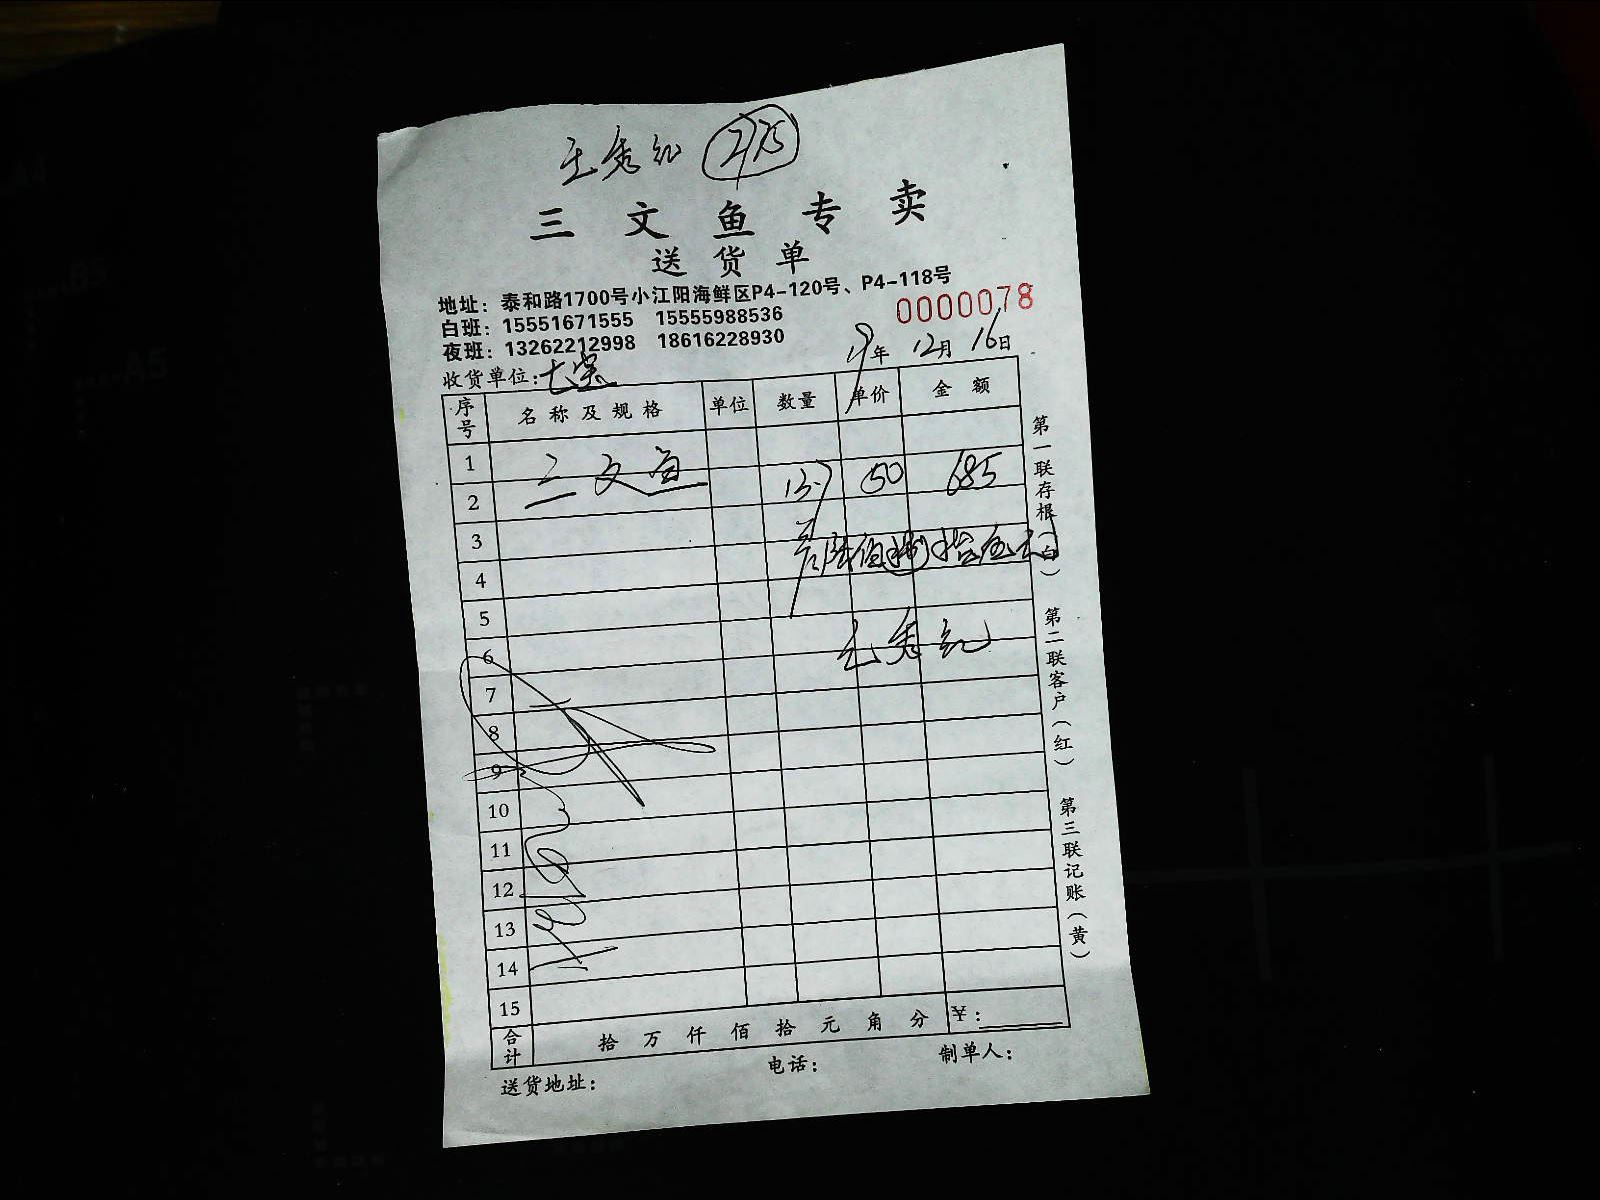 王秀红 275
三文鱼专卖
送货单
地址：泰和路1700号小江阳海鲜区P4-120号、P4-118号
白班：15551671555 15555988536
0000078
夜班：13262212998 18616228930
19年12月16日
收货单位：
序号 名称及规格 单位 数量 单价 金额
1
三文鱼 13.7 50 685
2
3
陆佰捌拾伍元
4
5
王秀红
6
7
8
9
10
11
12
13
14
15
合计 拾万仟佰拾元角分 ¥：
送货地址： 电话： 制单人：
第一联存根（白）
第二联客户（红）
第三联记账（黄）